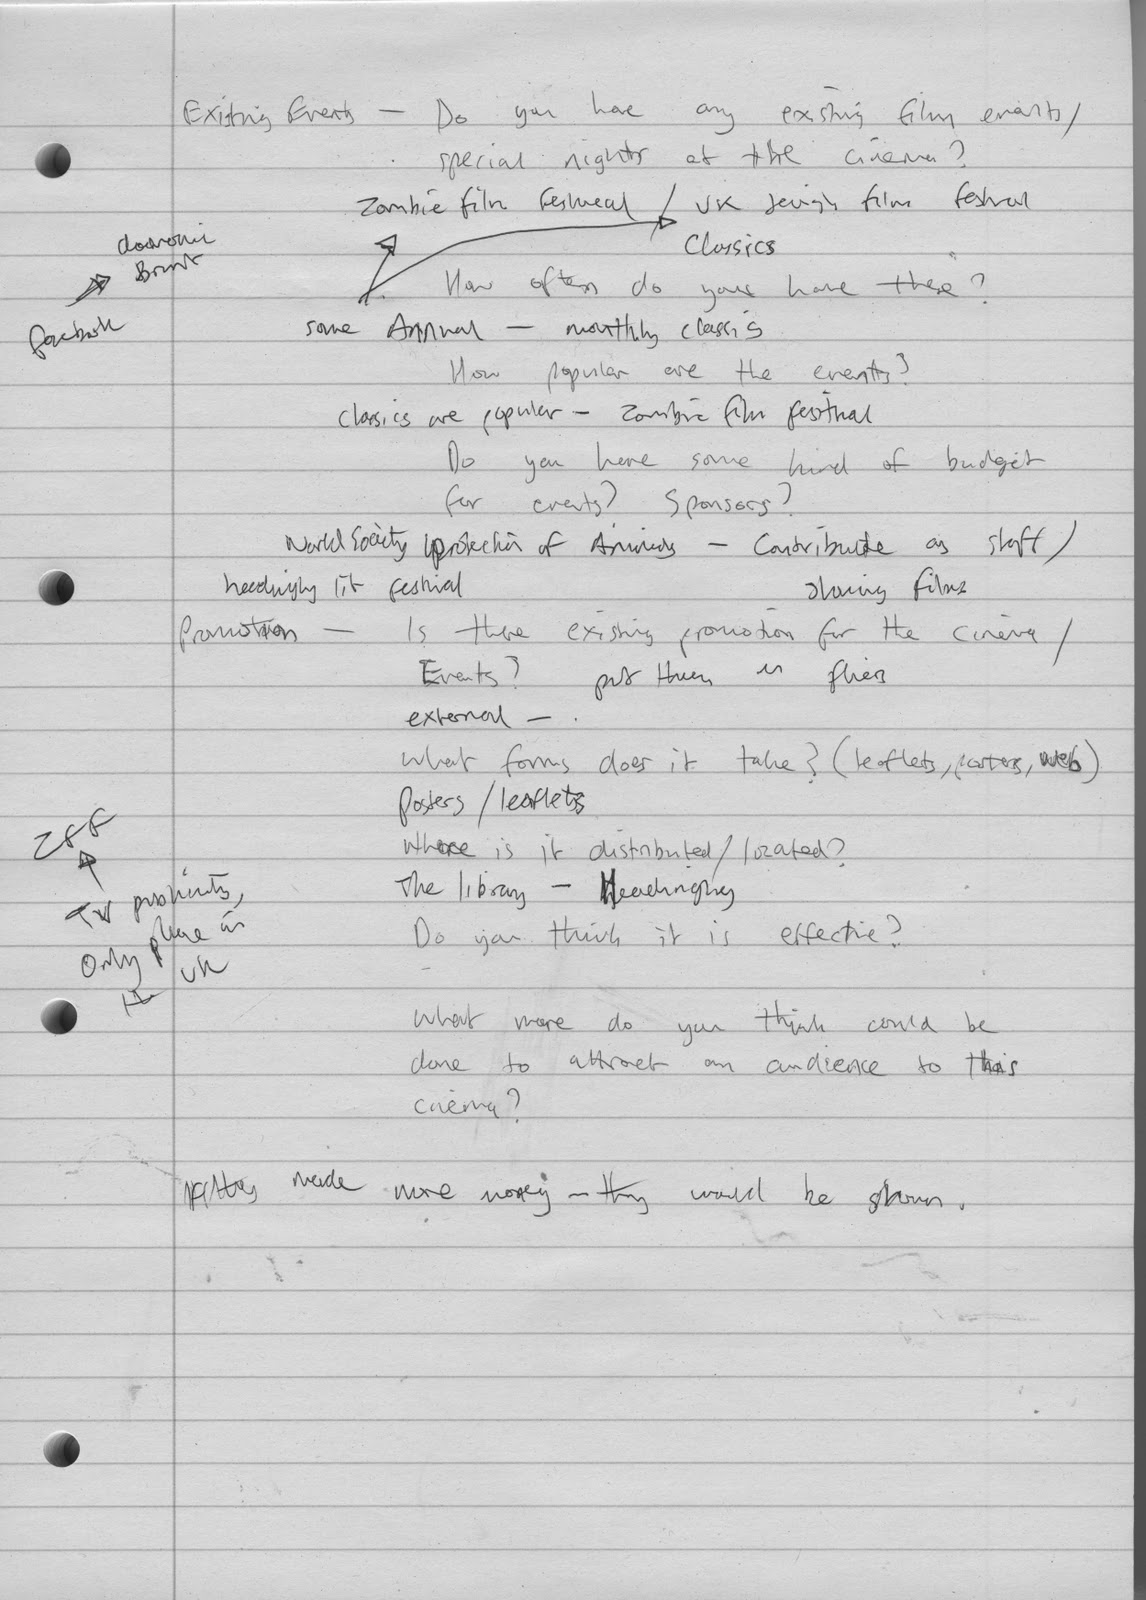 Existing Events — Do you have any existing film events/
special nights at the cinema?
Zombie film Festiveal / UK Jewish film festival
Classics
How often do your have these?
some Annual — monthly classics
facebook
How popular are the events?
Classics are popular — Zombie film festival
Do you have some kind of budget
for events? Sponsors?
World Society protection of Animals — Contribute as staff/
headingley lit festival showing films
Promotion — Is there existing promotion for the cinema/
Events? put them in fliers
external —
What forms does it take? (leaflets, posters, web)
posters / leaflets
Where is it distributed/located?
The library — Headingley
Do you think it is effective?
ZFF
TV publicity,
Only place in
the UK
What more do you think could be
done to attract an audience to this
cinema?
If they made more money — they would be shown.